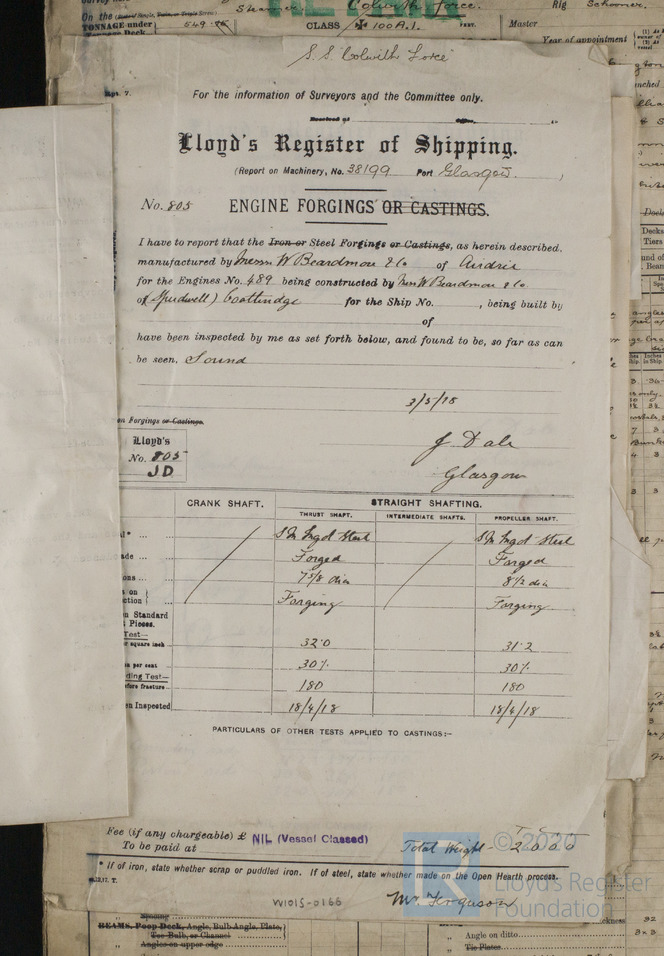 Steamer Colwith Force. Rig Schooner.
TONNAGE under 549.75 CLASS ✠ 100 A.1. FEET. Master
Year of appointment
S.S. Colwith Force
Rpt. 7.
For the information of Surveyors and the Committee only.
Received at office,
Lloyd's Register of Shipping.
(Report on Machinery, No. 38199 Port Glasgow.)
No. 805 ENGINE FORGINGS OR CASTINGS.
I have to report that the Iron or Steel Forgings or Castings, as herein described,
manufactured by Messrs W Beardmore & Co of Airdrie
for the Engines No. 489 being constructed by Messrs W Beardmore & Co.
of (Speedwell) Coatbridge for the Ship No. , being built by
of
have been inspected by me as set forth below, and found to be, so far as can
be seen, Sound
3/5/18
on Forgings or Castings.
Lloyd's
No. 805
JD
J Dale
Glasgow
CRANK SHAFT. STRAIGHT SHAFTING.
THRUST SHAFT. INTERMEDIATE SHAFTS. PROPELLER SHAFT.
S M Ingot Steel S M Ingot Steel
Forged Forged
7 5/8 dia 8 1/2 dia
Forging Forging
on Standard
Pieces.
Test—
square inch 32.0 31.2
per cent 30% 30%
ding Test—
before fracture 180 180
en Inspected 18/4/18 18/4/18
PARTICULARS OF OTHER TESTS APPLIED TO CASTINGS:-
Fee (if any chargeable) £ NIL (Vessel Classed)
To be paid at Total Weight - 2
* If of iron, state whether scrap or puddled iron. If of steel, state whether made on the Open Hearth process.
W1015-0166 Mr. Ferguson
© 2020
Lloyd's Register
Foundation
Spacing
BEAMS, Poop Deck, Angle, Bulb Angle, Plate,
Tee Bulb, or Channel
„ Angles on upper edge
„ Angle on ditto
„ Tie Plates